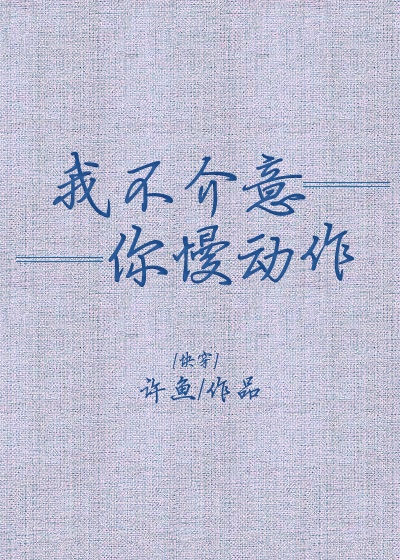 我不介意
你慢动作
/快穿/
许鱼/作品